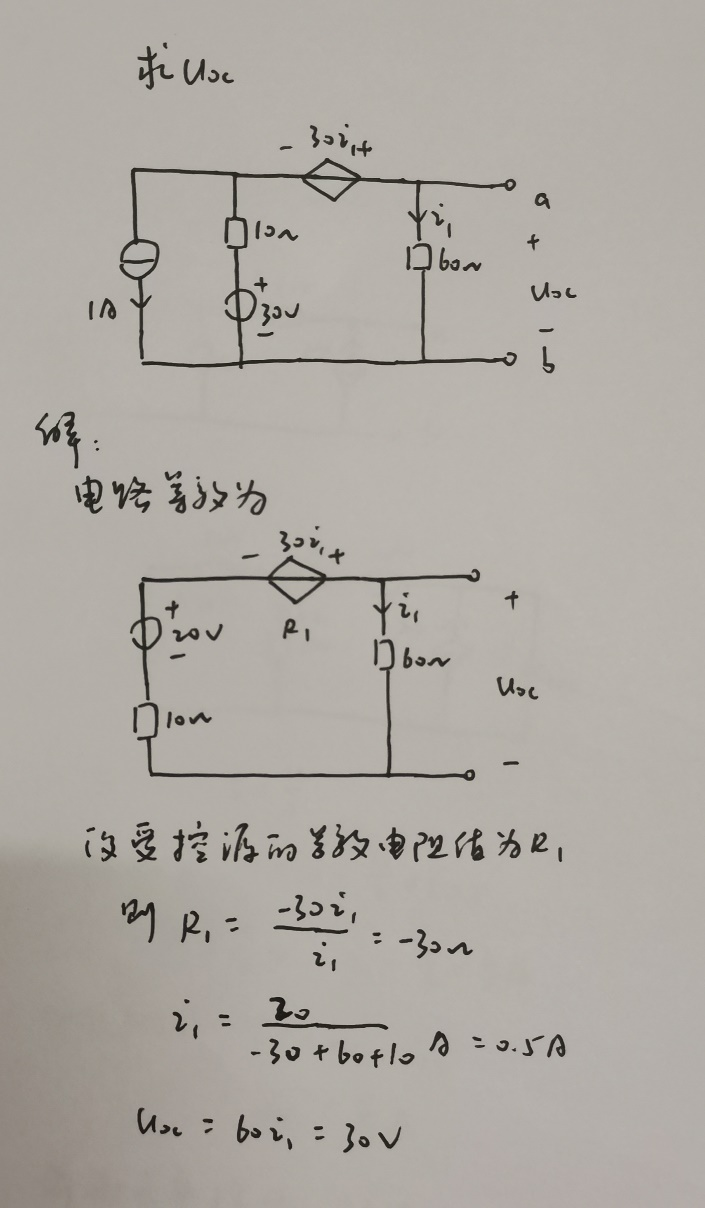 求 Uoc
- 30i₁ +
a
10Ω
i₁
60Ω
+
Uoc
-
1A
+
30V
-
b
解:
电路等效为
- 30i₁ +
+
20V
-
R₁
i₁
60Ω
+
Uoc
-
10Ω
设受控源的等效电阻值为R₁
则 R₁ = -30i₁/i₁ = -30Ω
i₁ = 20/(-30+60+10) A = 0.5A
Uoc = 60i₁ = 30V